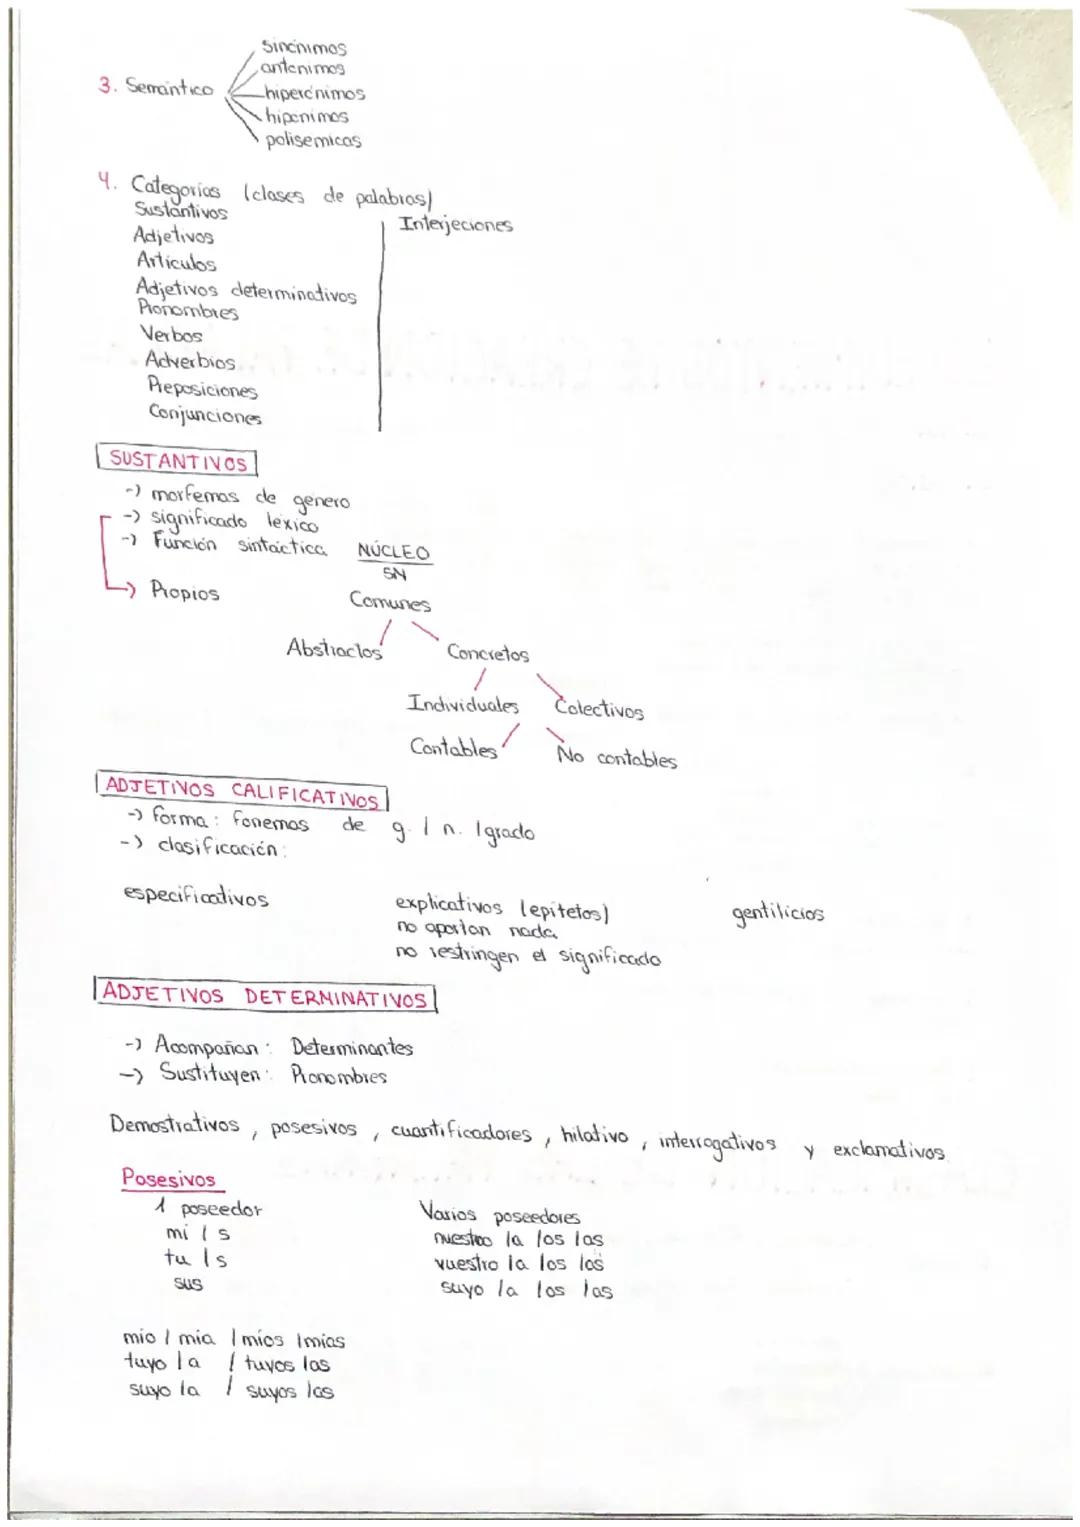 3. Semántico
sinónimos
antónimos
hiperónimos
hipónimos
polisemicas
4. Categorías (clases de palabras)
Sustantivos
Adjetivos
Artículos
Adjetivos determinativos
Pronombres
Verbos
Adverbios
Preposiciones
Conjunciones
Interjeciones
SUSTANTIVOS
-> morfemas de género
-> significado léxico
-> Función sintáctica NÚCLEO
SN
-> Propios Comunes
Abstractos Concretos
Individuales Colectivos
Contables No contables
ADJETIVOS CALIFICATIVOS
-> forma: fonemas de g. / n. / grado
-> clasificación:
especificativos explicativos (epítetos) gentilicios
no aportan nada
no restringen el significado
ADJETIVOS DETERMINATIVOS
-> Acompañan: Determinantes
-> Sustituyen: Pronombres
Demostrativos, posesivos, cuantificadores, hilativo, interrogativos y exclamativos
Posesivos
1 poseedor Varios poseedores
mi / s nuestro /a /os /as
tu / s vuestro /a /os /as
sus suyo /a /os /as
mio / mia / míos / mías
tuyo /a / tuyos /as
suyo /a / suyos /as